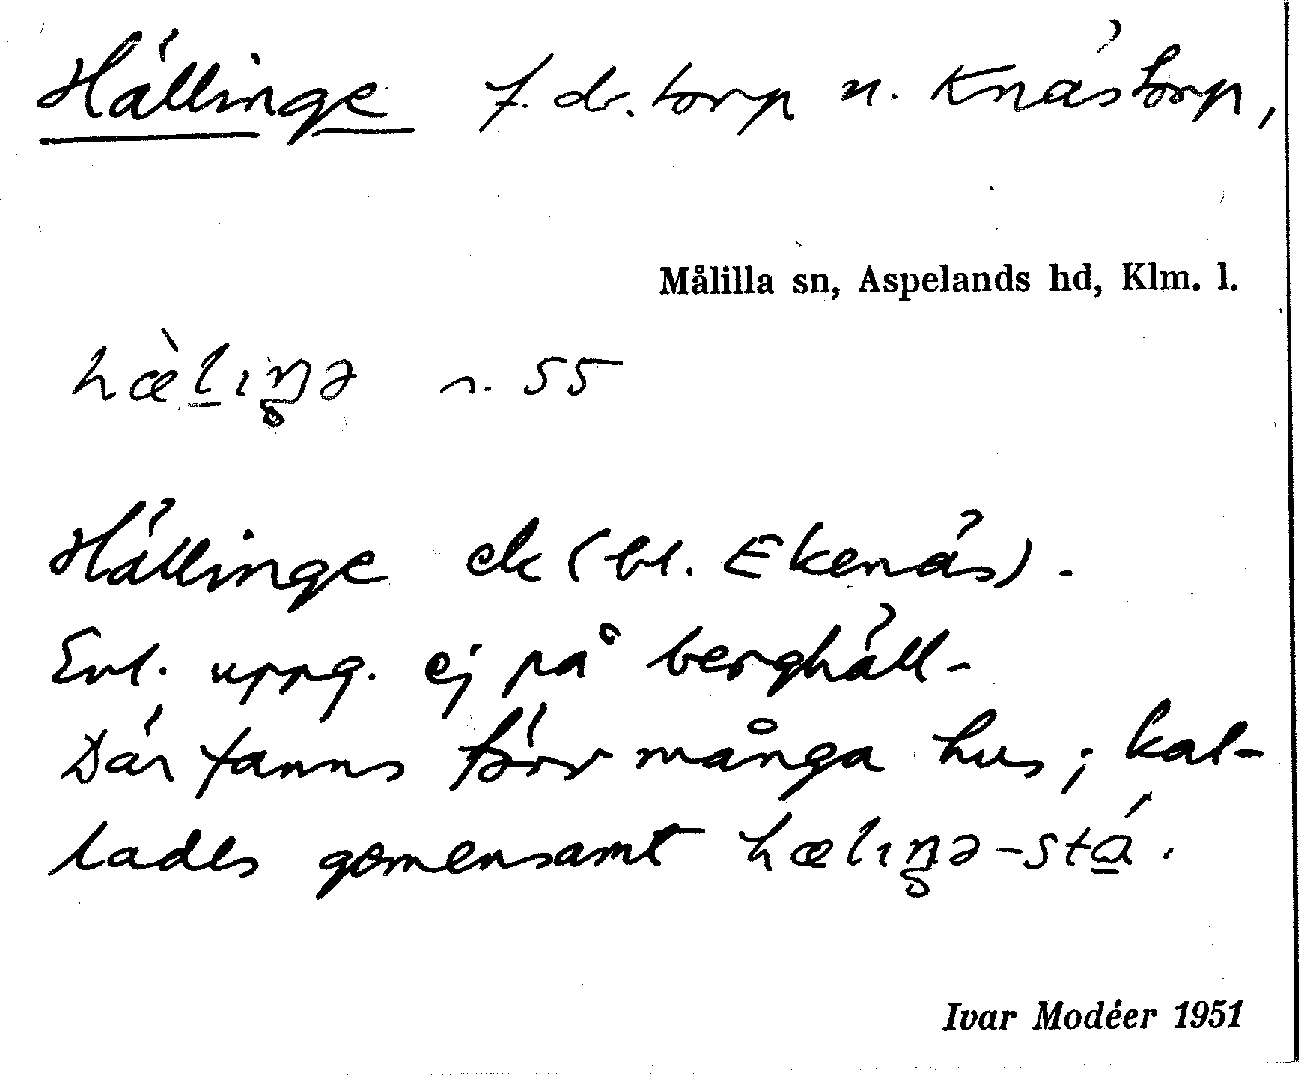 Hällinge f.d. torp u. Knästorp,
Målilla sn, Aspelands hd, Klm. l.
hæ̀l̠ıŋə n. 55
Hällinge ek (bl. Ekenäs).
Enl. uppg. ej på berghäll-
Där fanns förr många hus; kal-
lades gemensamt hælıŋə-stá̠.
Ivar Modéer 1951